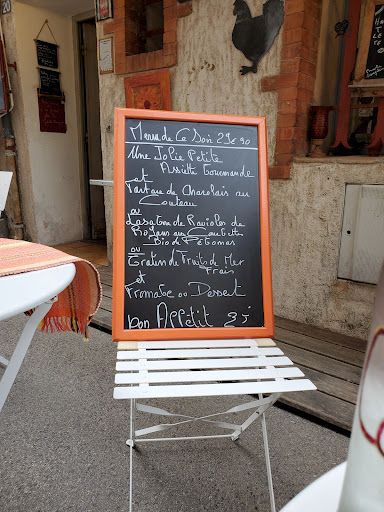 Menu de Ce Soir 29€90
Une Jolie Petite
Assiette Gourmande
et
Tartare de Charolais au
Couteau
ou
Lasagne de Ravioles de
Royans aux Courgettes
Bio de Pé Tomas
ou
Gratin de Fruits de Mer
Frais
et
Fromage ou Dessert
bon Appétit